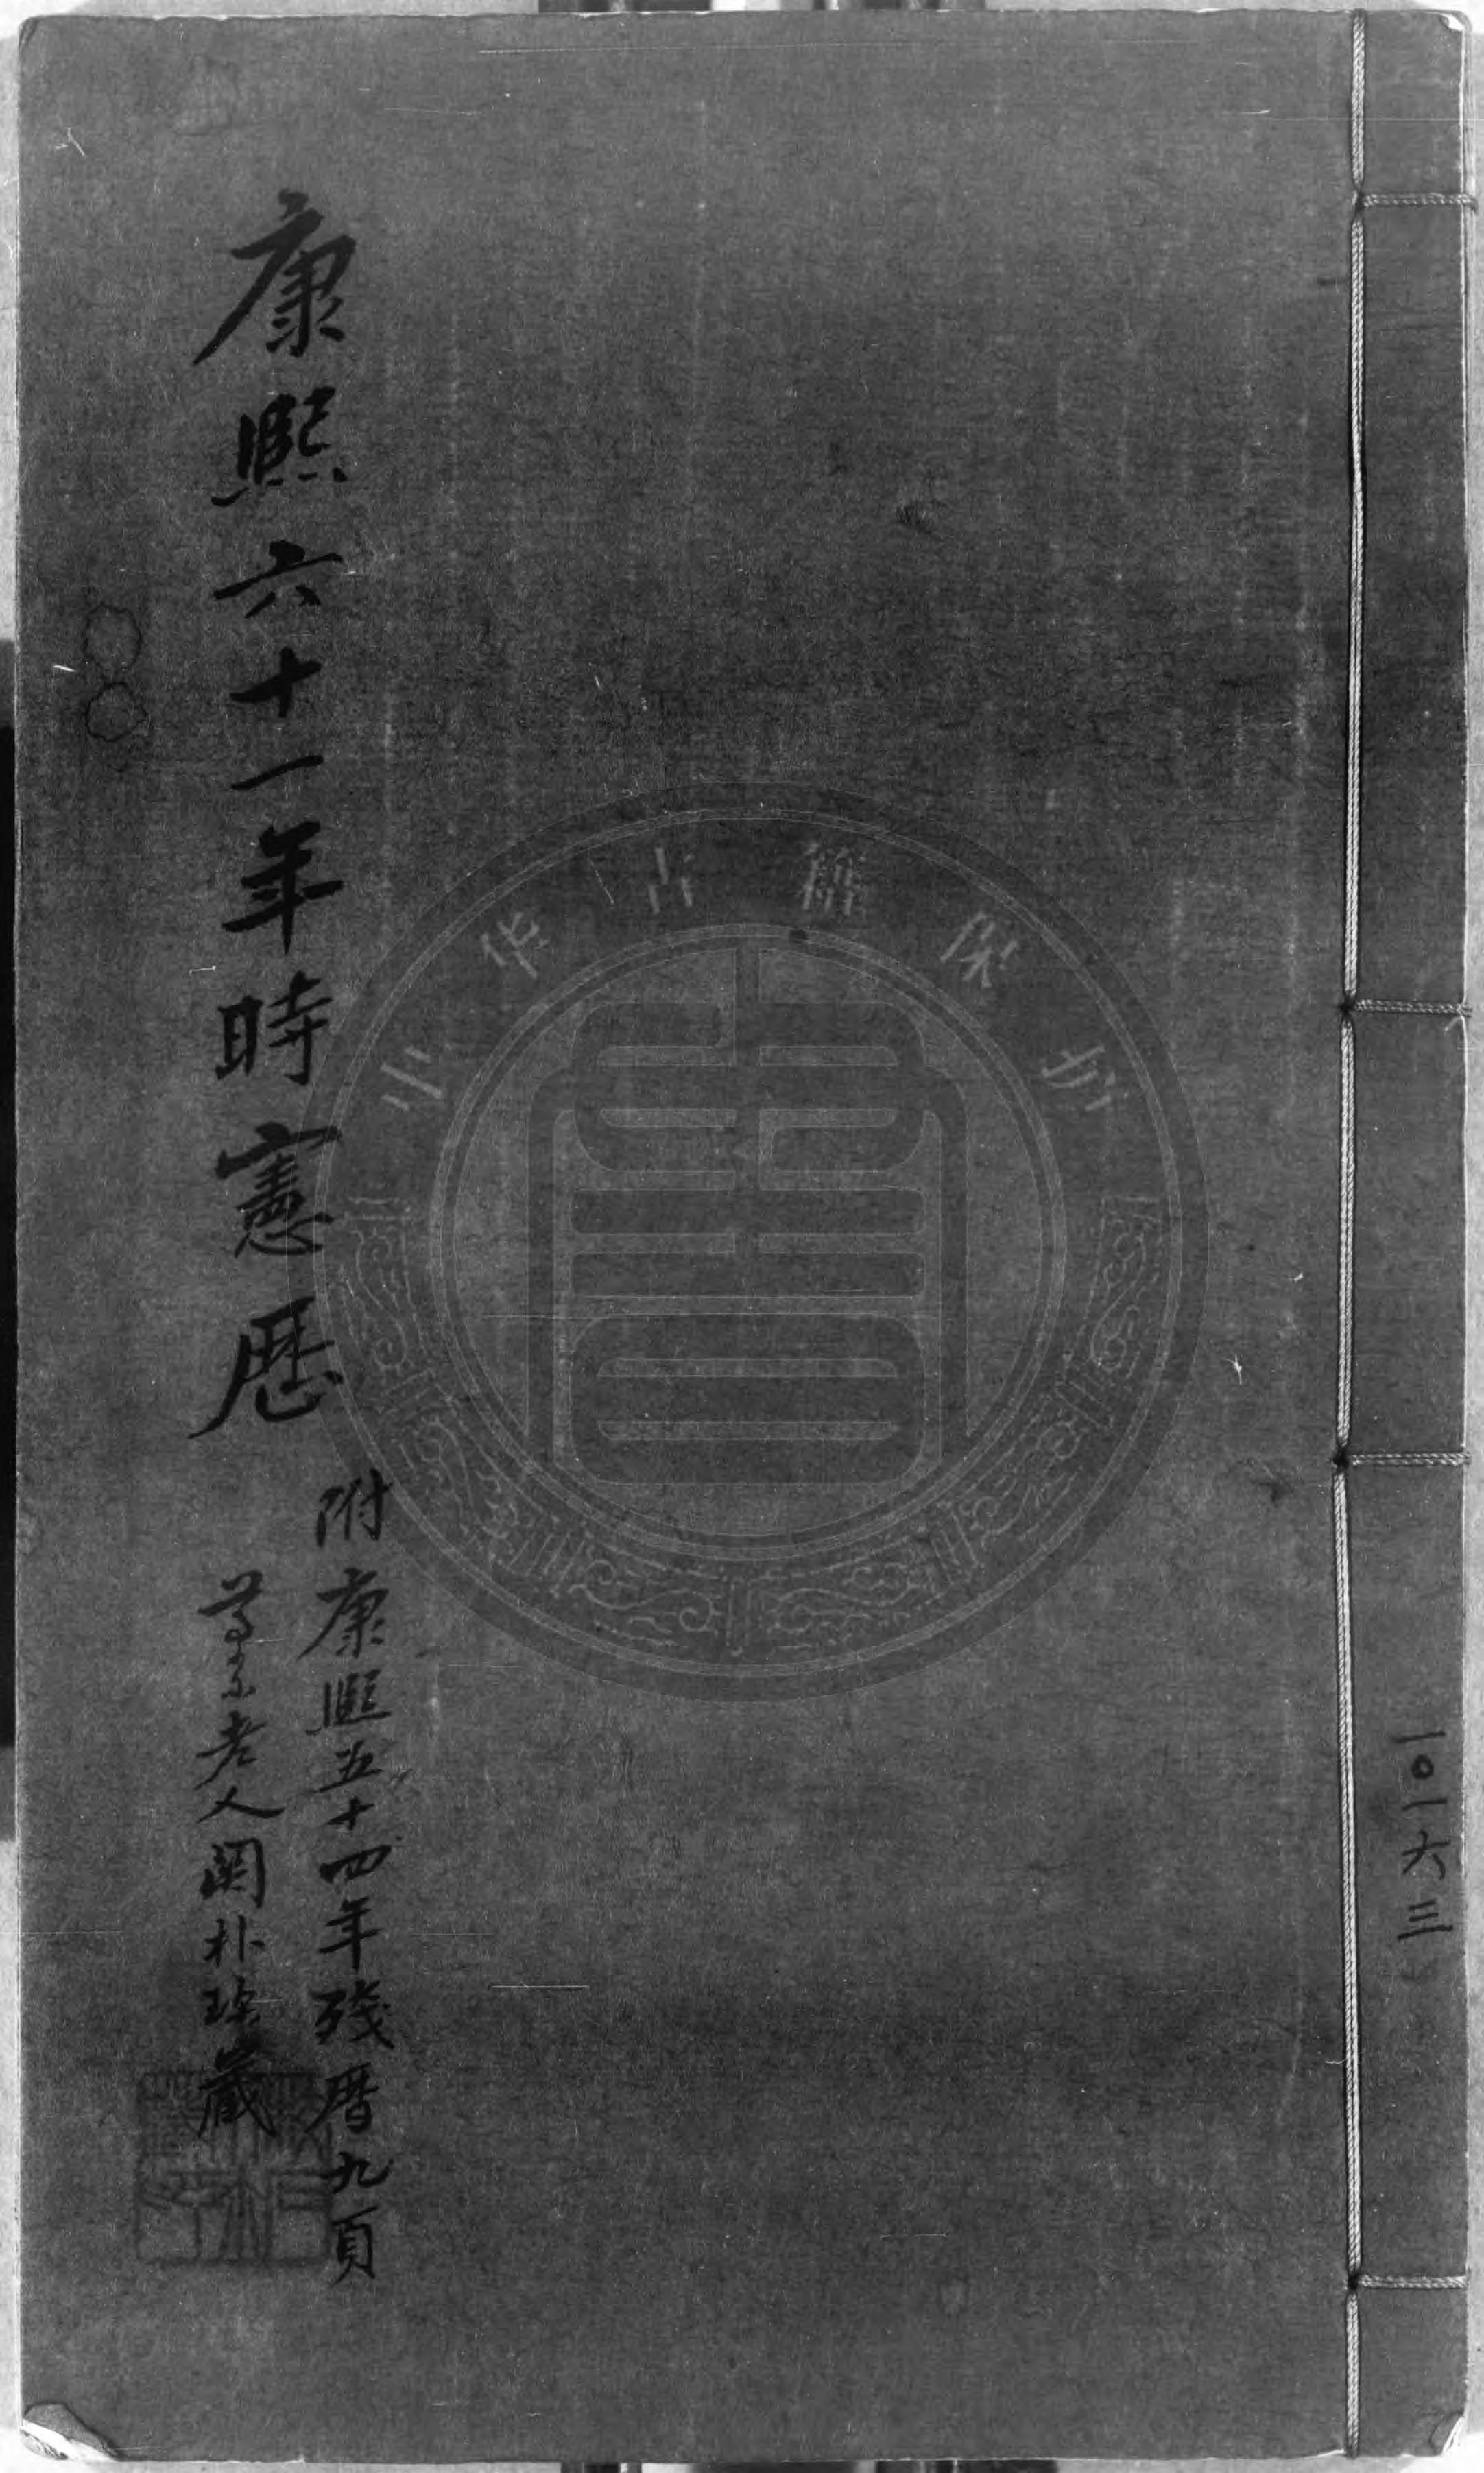 一〇一六三
附康熙五十四年殘曆九頁
康熙六十一年時憲歷
老人閱朴珍藏
中华古籍保护